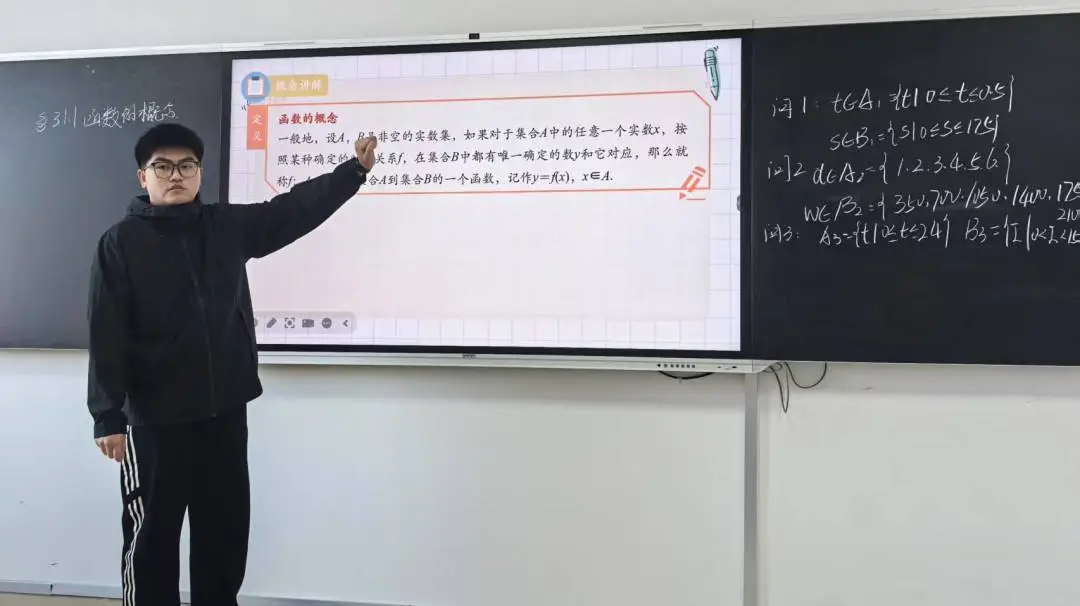 §3.1.1 函数的概念
概念讲解
定义
函数的概念
一般地，设A，B是非空的实数集，如果对于集合A中的任意一个实数x，按
照某种确定的 关系f，在集合B中都有唯一确定的数y和它对应，那么就
称f： 合A到集合B的一个函数，记作y=f(x)，x∈A.
问1： t∈A₁={t|0≤t≤0.5}
S∈B₁={S|0≤S≤175}
问2 d∈A₂={1.2.3.4.5.6}
W∈B₂={350.700.1050.1400.175
210
问3： A₃={t|0≤t≤24} B₃={I|0<I<15